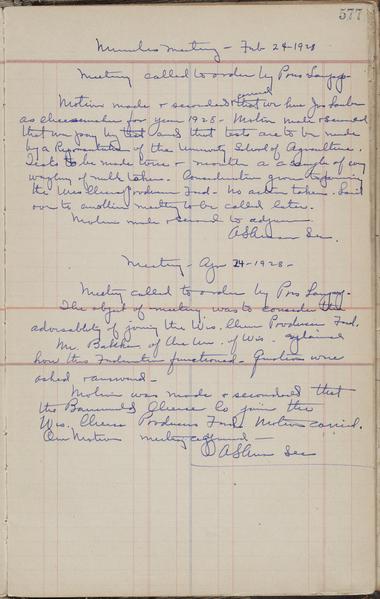 577
Minutes meeting - Feb 24 - 1928
Meeting called to order by Pres
Motion made & seconded that we hire Jos
carried
as cheesemaker for year 1928 - Motion made & seconded
that we pay by test and that tests are to be made
by a Representative of the University School of Agriculture.
Tests to be made twice a month & a sample of
of milk taken. Consideration given to joining
the Wis. Cheese Producers Fed. - No action taken. Laid
over to another meeting to be called later.
Motion made & second to adjourn
Sec.
Meeting - Apr 24 - 1928 -
Meeting called to order by Pres
The object of meeting was to consider the
advisability of joining the Wis. Cheese Producers Fed.
Mr. of the Uni. of Wis. explained
how this Federation functioned. Questions were
asked & answered -
Motion was made & seconded that
the Cheese Co join the
Wis. Cheese Producers Fed. Motion carried.
On Motion meeting adjourned -
Sec